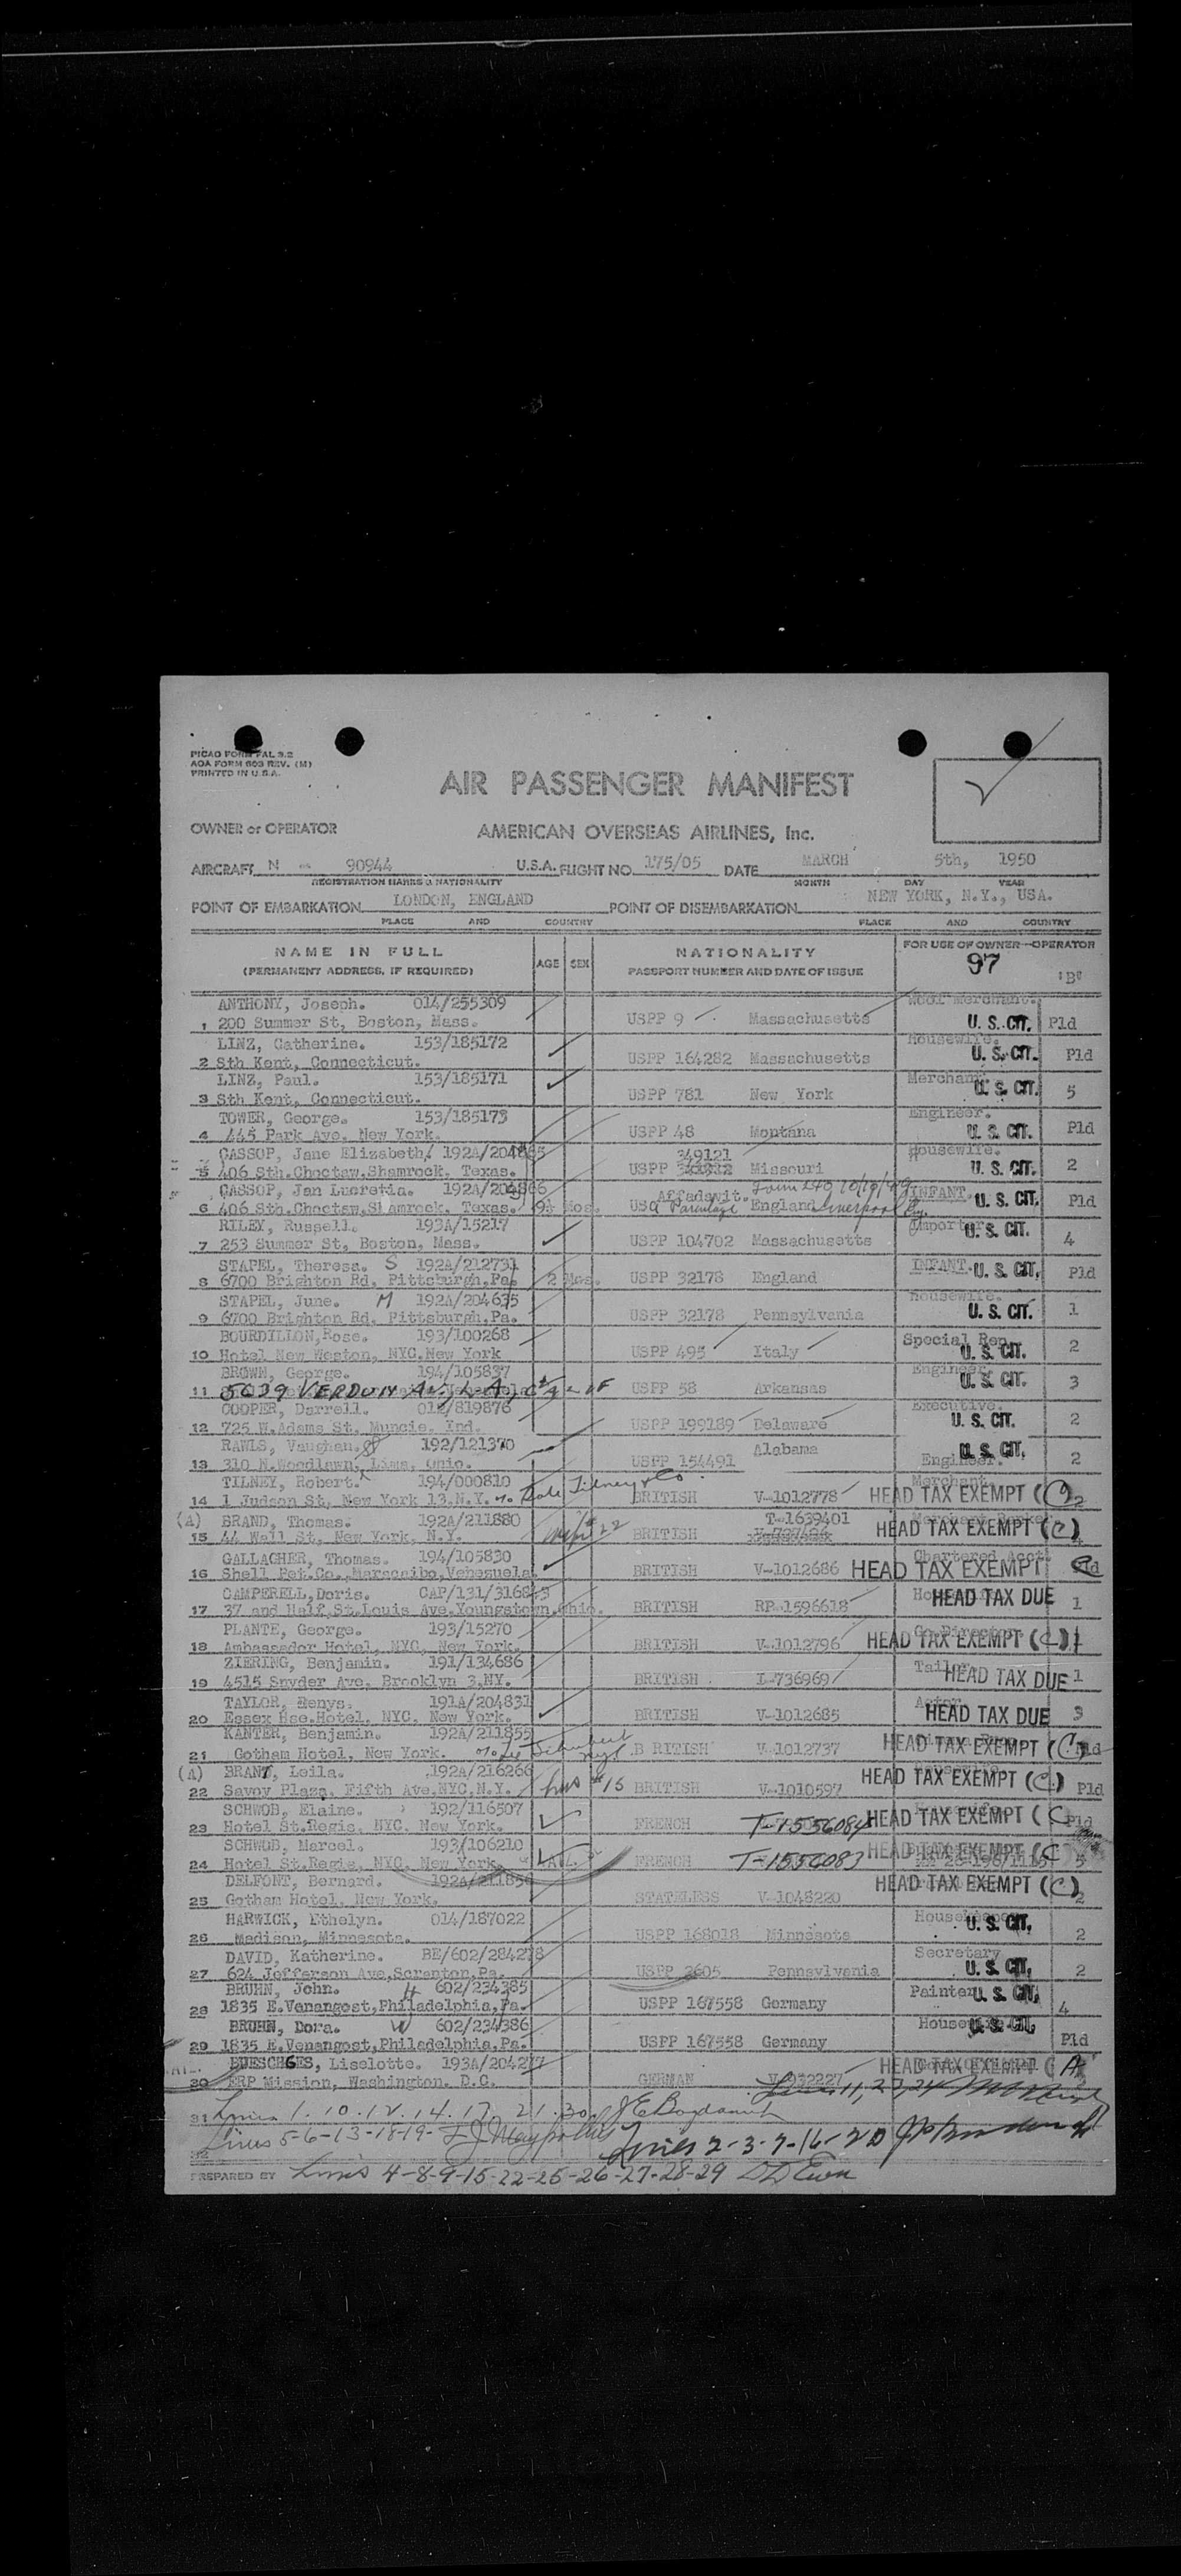 PICAO FORM FAL 3.2
AOA FORM 603 REV. (M)
PRINTED IN U.S.A.
AIR PASSENGER MANIFEST
OWNER or OPERATOR AMERICAN OVERSEAS AIRLINES, Inc.
AIRCRAFT N - 90944 U.S.A. FLIGHT NO. 175/05 DATE MARCH 5th, 1950
REGISTRATION MARKS & NATIONALITY MONTH DAY YEAR
POINT OF EMBARKATION LONDON, ENGLAND POINT OF DISEMBARKATION NEW YORK, N.Y., USA.
PLACE AND COUNTRY PLACE AND COUNTRY
NAME IN FULL AGE SEX NATIONALITY FOR USE OF OWNER-OPERATOR
(PERMANENT ADDRESS, IF REQUIRED) PASSPORT NUMBER AND DATE OF ISSUE 97 'B'
ANTHONY, Joseph. 014/255309 Wool Merchant.
1 200 Summer St, Boston, Mass. USPP 9 Massachusetts U. S. CIT. Pld
LINZ, Catherine. 153/185172 Housewife.
2 Sth Kent, Connecticut. USPP 164282 Massachusetts U. S. CIT. Pld
LINZ, Paul. 153/185171 Merchant.
3 Sth Kent, Connecticut. USPP 781 New York U. S. CIT. 5
TOWER, George. 153/185173 Engineer.
4 445 Park Ave, New York. USPP 48 Montana U. S. CIT. Pld
CASSOP, Jane Elizabeth. 192A/204865 349121 Housewife.
5 406 Sth.Choctaw.Shamrock, Texas. USPP Missouri U. S. CIT. 2
CASSOP, Jan Lucretia. 192A/204866 Affadavit. Form 240 10/19/49 INFANT.
6 406 Sth.Choctaw.Shamrock, Texas. 9½ Mos. Parentage England Liverpool U. S. CIT. Pld
RILEY, Russell. 193A/15217 Importer
7 253 Summer St, Boston, Mass. USPP 104702 Massachusetts U. S. CIT. 4
STAPEL, Theresa. S 192A/212731 INFANT.
8 6700 Brighton Rd, Pittsburgh,Pa. 2 Mos. USPP 32178 England U. S. CIT. Pld
STAPEL, June. M 192A/204635 Housewife.
9 6700 Brighton Rd. Pittsburgh,Pa. USPP 32178 Pennsylvania U. S. CIT. 1
BOURDILLON,Rose. 193/100268 Special Rep.
10 Hotel New Weston, NYC,New York USPP 495 Italy U. S. CIT. 2
BROWN, George. 194/105837 Engineer.
11 5039 VERDUN AV, L.A, USPP 58 Arkansas U. S. CIT. 3
COOPER, Darrell. 012/819876 Executive.
12 725 W.Adams St, Muncie, Ind. USPP 199189 Delaware U. S. CIT. 2
RAWLS, Vaughan. 192/121370 Alabama U. S. CIT.
13 310 N.Woodlawn, Lima, Ohio. USPP 154491 Engineer. 2
TILNEY, Robert. 194/000810 Merchant.
14 1 Judson St, New York 13,N.Y. % Dale Tilney & Co. BRITISH V-1012778 HEAD TAX EXEMPT (C) 2
(A) BRAND, Thomas. 192A/211880 T-1639401 Merchant Banker
15 44 Wall St, New York, N.Y. BRITISH HEAD TAX EXEMPT (C)
GALLAGHER, Thomas. 194/105830 Chartered Acct.
16 Shell Pet.Co.,Maracaibo,Venesuela. BRITISH V-1012686 HEAD TAX EXEMPT Pld
CAMPERELL,Doris. CAP/131/316843
17 37 and Half,St.Louis Ave,Youngstown,Ohio. BRITISH RP-1596618 HEAD TAX DUE 1
PLANTE, George. 193/15270 Co.Director
18 Ambassador Hotel, NYC, New York. BRITISH V-1012796 HEAD TAX EXEMPT (C) 1
ZIERING, Benjamin. 191/134686 Tailor
19 4515 Snyder Ave, Brooklyn 3,NY. BRITISH I-736969 HEAD TAX DUE 1
TAYLOR, Renys. 191A/204831 Actor.
20 Essex Hse.Hotel, NYC, New York. BRITISH V-1012685 HEAD TAX DUE 3
KANTER, Benjamin. 192A/211855
21 Gotham Hotel, New York. B RITISH V-1012737 HEAD TAX EXEMPT (C) Pld
(A) BRAND, Leila. 192A/216266
22 Savoy Plaza, Fifth Ave,NYC,N.Y. line #15 BRITISH V-1010597 HEAD TAX EXEMPT (C) Pld
SCHWOB, Elaine. 192/116507
23 Hotel St.Regis, NYC, New York. FRENCH T-1556084 HEAD TAX EXEMPT (C Pld
SCHWOB, Marcel. 193/106210
24 Hotel St.Regis, NYC, New York. FRENCH T-1556083 HEAD TAX EXEMPT (C 5
DELFONT, Bernard. 192A/211856
25 Gotham Hotel, New York. STATELESS V-1048220 HEAD TAX EXEMPT (C) 2
HARWICK, Ethelyn. 014/187022 Housekeeper
26 Madison, Minnesota. USPP 168018 Minnesota U. S. CIT. 2
DAVID, Katherine. BE/602/284278 Secretary
27 624 Jefferson Ave,Scranton,Pa. USPP 2605 Pennsylvania U. S. CIT. 2
BRUHN, John. H 602/234385 Painter U. S. CIT.
28 1835 E.Venangost,Philadelphia,Pa. USPP 167558 Germany 4
BRUHN, Dora. W 602/234386 Housewife U. S. CIT.
29 1835 E.Venangost,Philadelphia,Pa. USPP 167558 Germany Pld
BUESCHGES, Liselotte. 193A/204277 HEAD TAX EXEMPT (A
30 ERP Mission, Washington. D.C. GERMAN V-932227
Lines 11, 23, 24
31 Lines 1.10.12.14.17.21.30.
32 Lines 5-6-13-18-19- Lines 2-3-7-16-20
PREPARED BY Lines 4-8-9-15-22-25-26-27-28-29